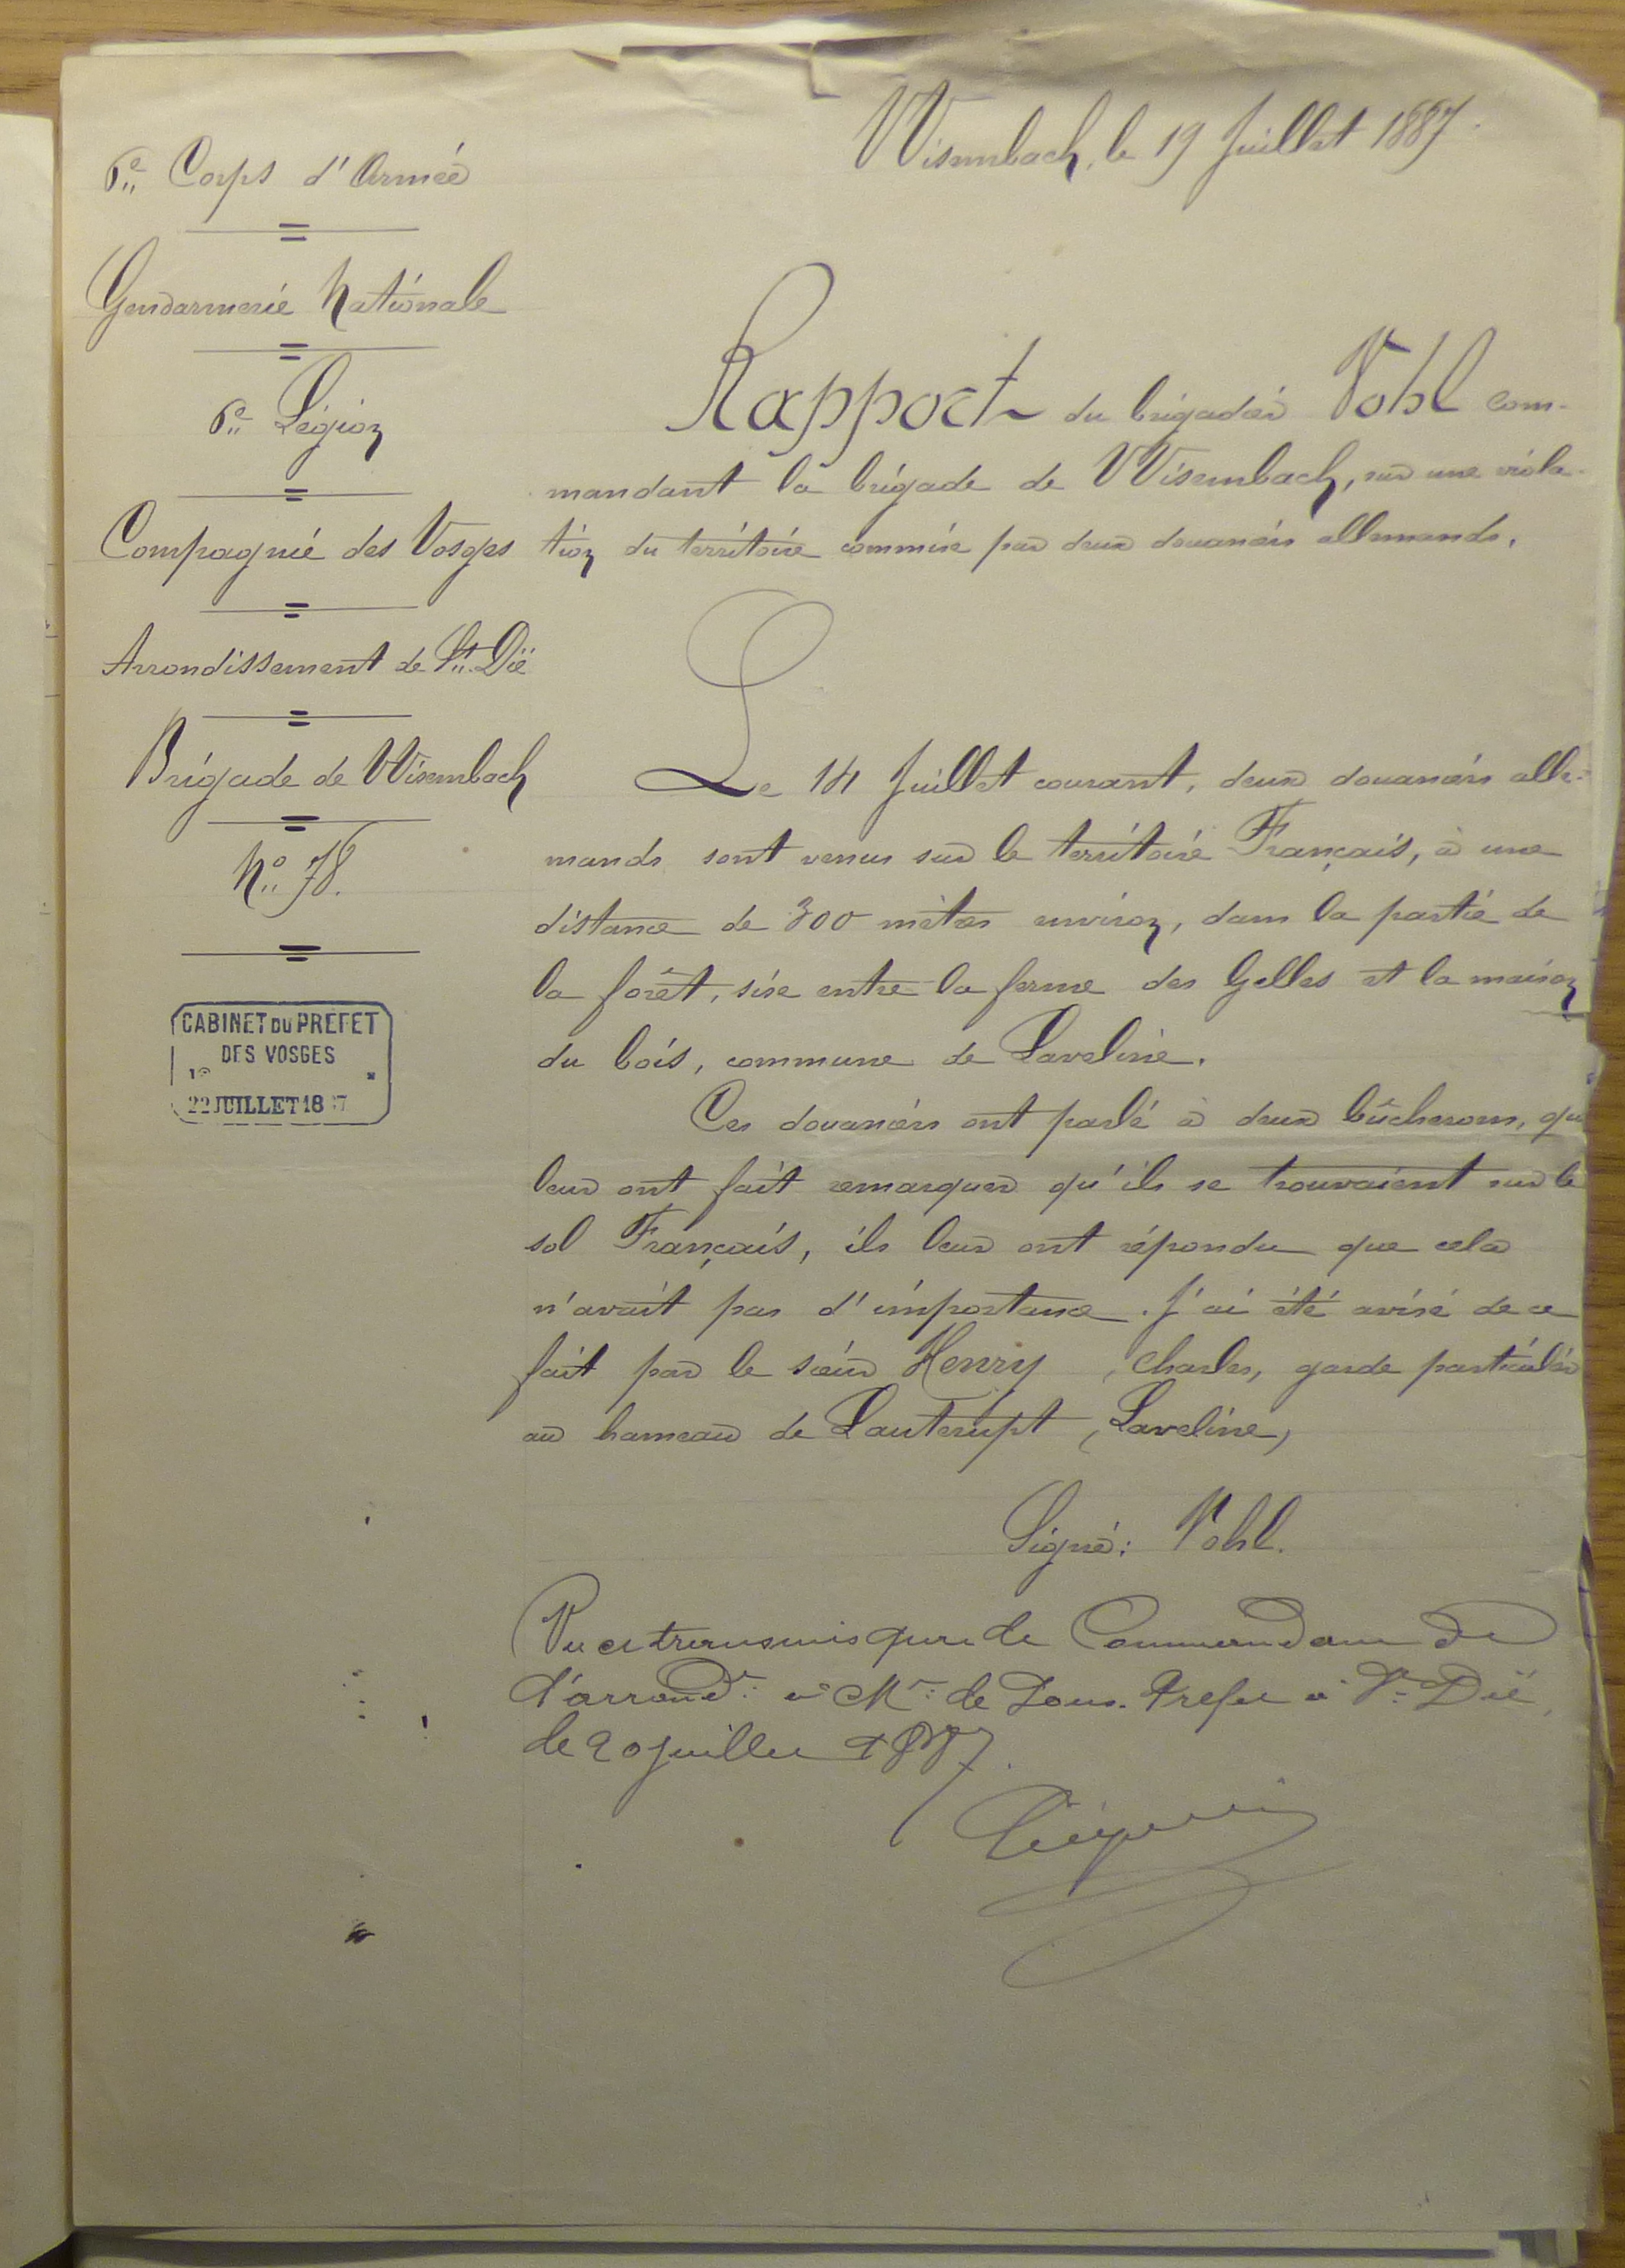 Wisembach, le 19 Juillet 1887.
6e Corps d'Armée
Gendarmerie Nationale
6e Légion
Compagnie des Vosges
Arrondissement de St Dié
Brigade de Wisembach
No 78.
CABINET DU PREFET
DES VOSGES
22 JUILLET 18 7
Rapport du brigadier Vohl com-
mandant la brigade de Wisembach, sur une viola-
tion du territoire commise par deux douaniers allemands.
Le 14 Juillet courant, deux douaniers alle-
mands sont venus sur le territoire Français, à une
distance de 300 mètres environ, dans la partie de
la forêt, sise entre la ferme des Gelles et la maison
du bois, commune de Laveline.
Ces douaniers ont parlé à deux bûcherons, qui
leur ont fait remarquer qu'ils se trouvaient sur le
sol Français, ils leur ont répondu que cela
n'avait pas d'importance. J'ai été avisé de ce
fait par le sieur Henry, Charles, garde particulier
au hameau de Lauterupt (Laveline)
Signé: Vohl.
Vu et transmis par le Commandant de
l'arrondt à Mr le Sous-Préfet à St Dié,
le 20 juillet 1887.